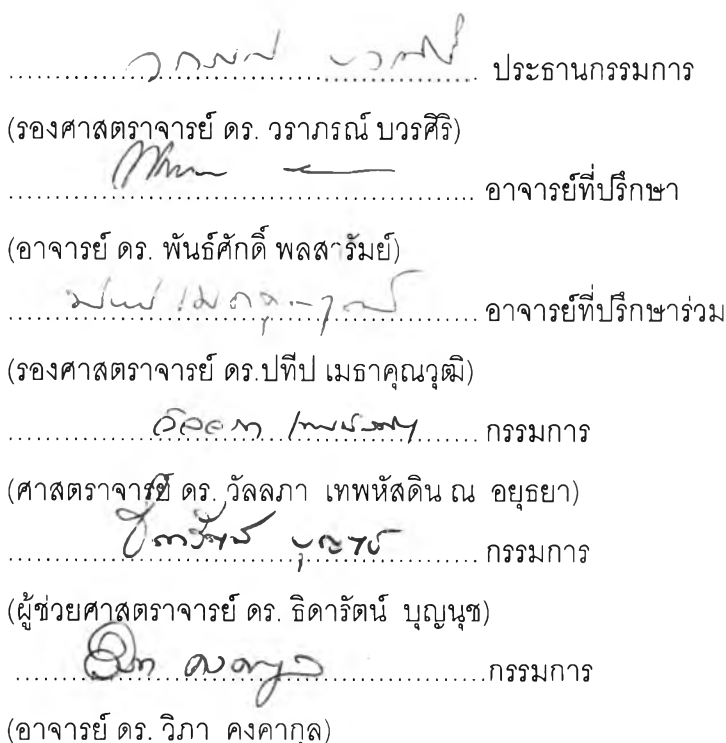 ประธานกรรมการ
(รองศาสตราจารย์ ดร. วราภรณ์ บวรศิริ)
อาจารย์ที่ปรึกษา
(อาจารย์ ดร. พันธ์ศักดิ์ พลสารัมย์)
อาจารย์ที่ปรึกษาร่วม
(รองศาสตราจารย์ ดร.ปทีป เมธาคุณวุฒิ)
กรรมการ
(ศาสตราจารย์ ดร. วัลลภา เทพหัสดิน ณ อยุธยา)
กรรมการ
(ผู้ช่วยศาสตราจารย์ ดร. ธิดารัตน์ บุญนุช)
กรรมการ
(อาจารย์ ดร. วิภา คงคากุล)